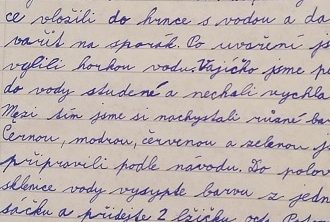 ce vložili do hrnce s vodou a da
vařit na sporák. Po uvaření js
vylili horkou vodu. Vajíčko jsme pe
do vody studené a nechali vychla
Mezi tím jsme si nachystali různé bar
Černou, modrou, červenou a zelenou js
připravili podle návodu. Do polov
sklenice vody vysypte barvu z jedn
sáčku a přidejte 2 lžičku octa. Po